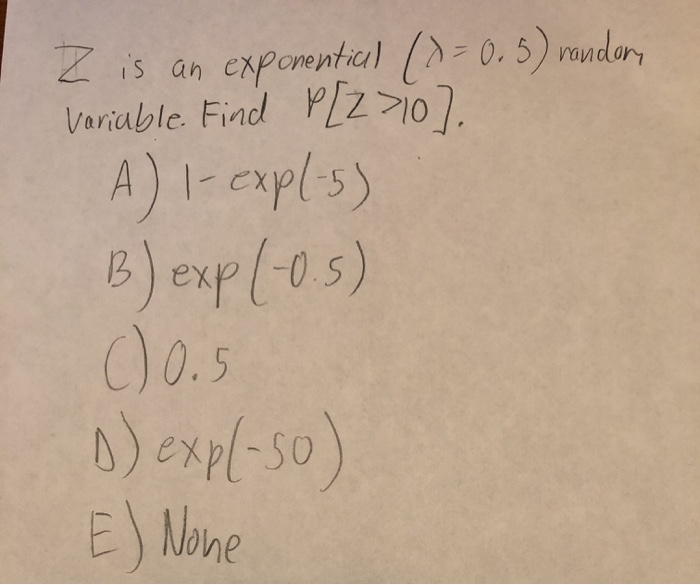 Z is an exponential (λ = 0.5) random
variable. Find P[Z >10].
A) 1- exp(-5)
B) exp(-0.5)
C) 0.5
D) exp(-50)
E) None